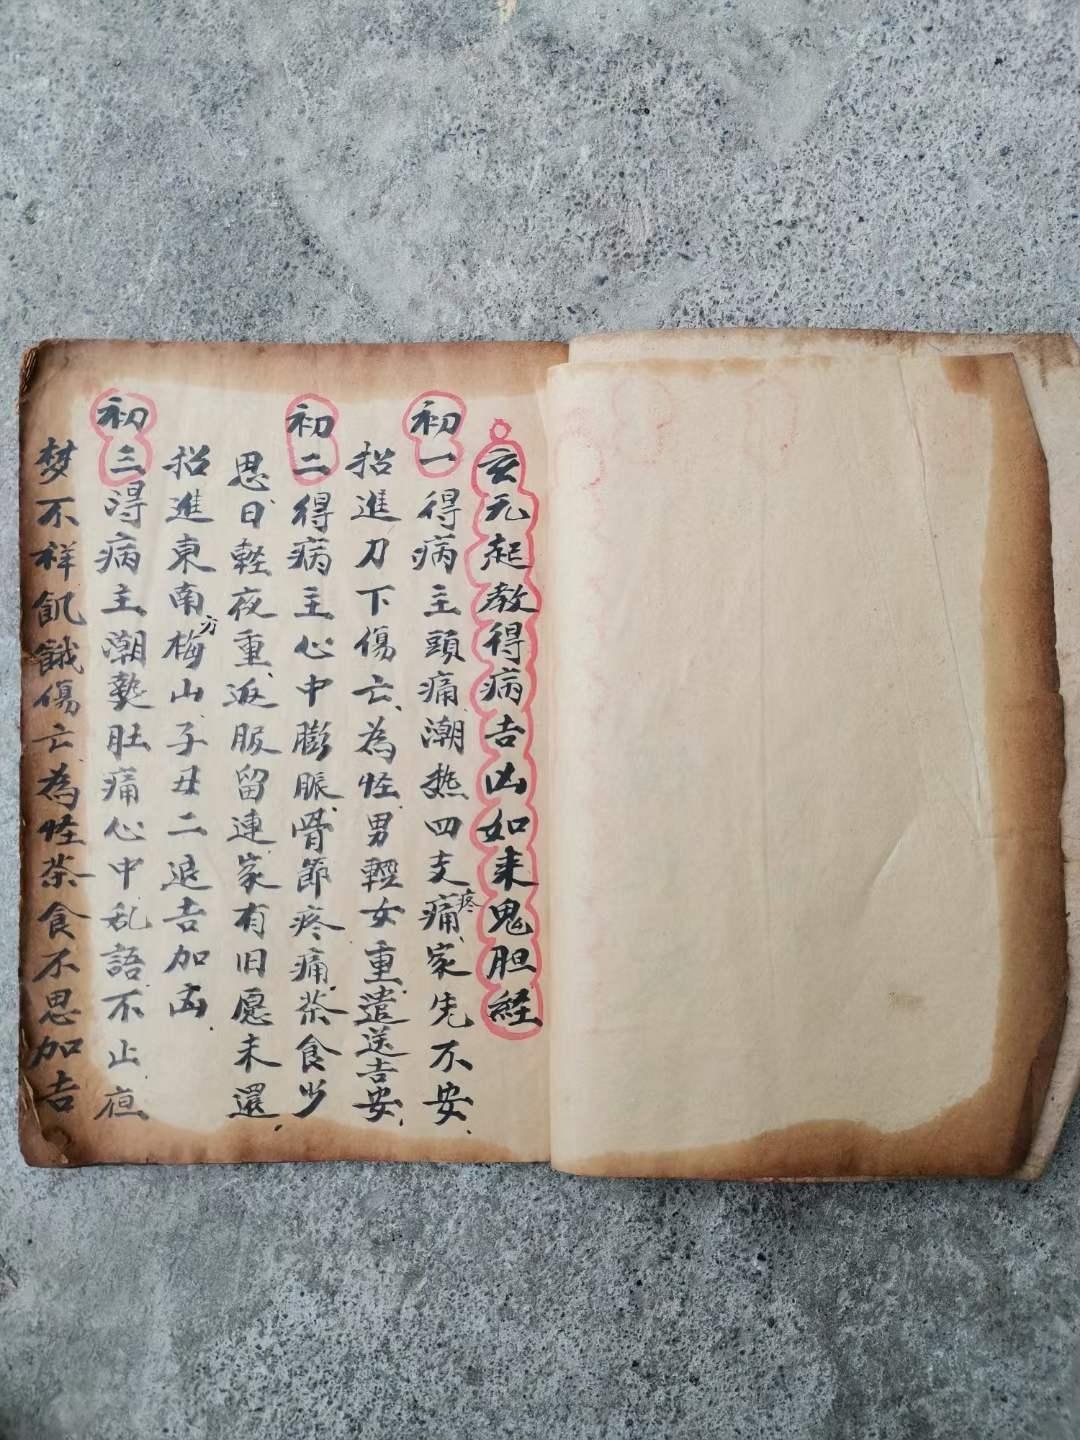 玄元起教得病吉凶如来鬼胆經
初一得病主頭痛潮热四支痛疼家先不安
招進刀下傷亡為怪男輕女重遣送吉安
初二得病主心中膨脹骨節疼痛茶食少
思日輕夜重返服留連家有旧愿未還
招進東南方梅山子丑二退吉加凶
初三得病主潮熱肚痛心中乱語不止夜
梦不祥飢餓傷亡為怪茶食不思加吉